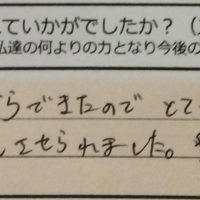 ていかがでしたか？（
私達の何よりの力となり今後の
らできたので とて
しませられました。